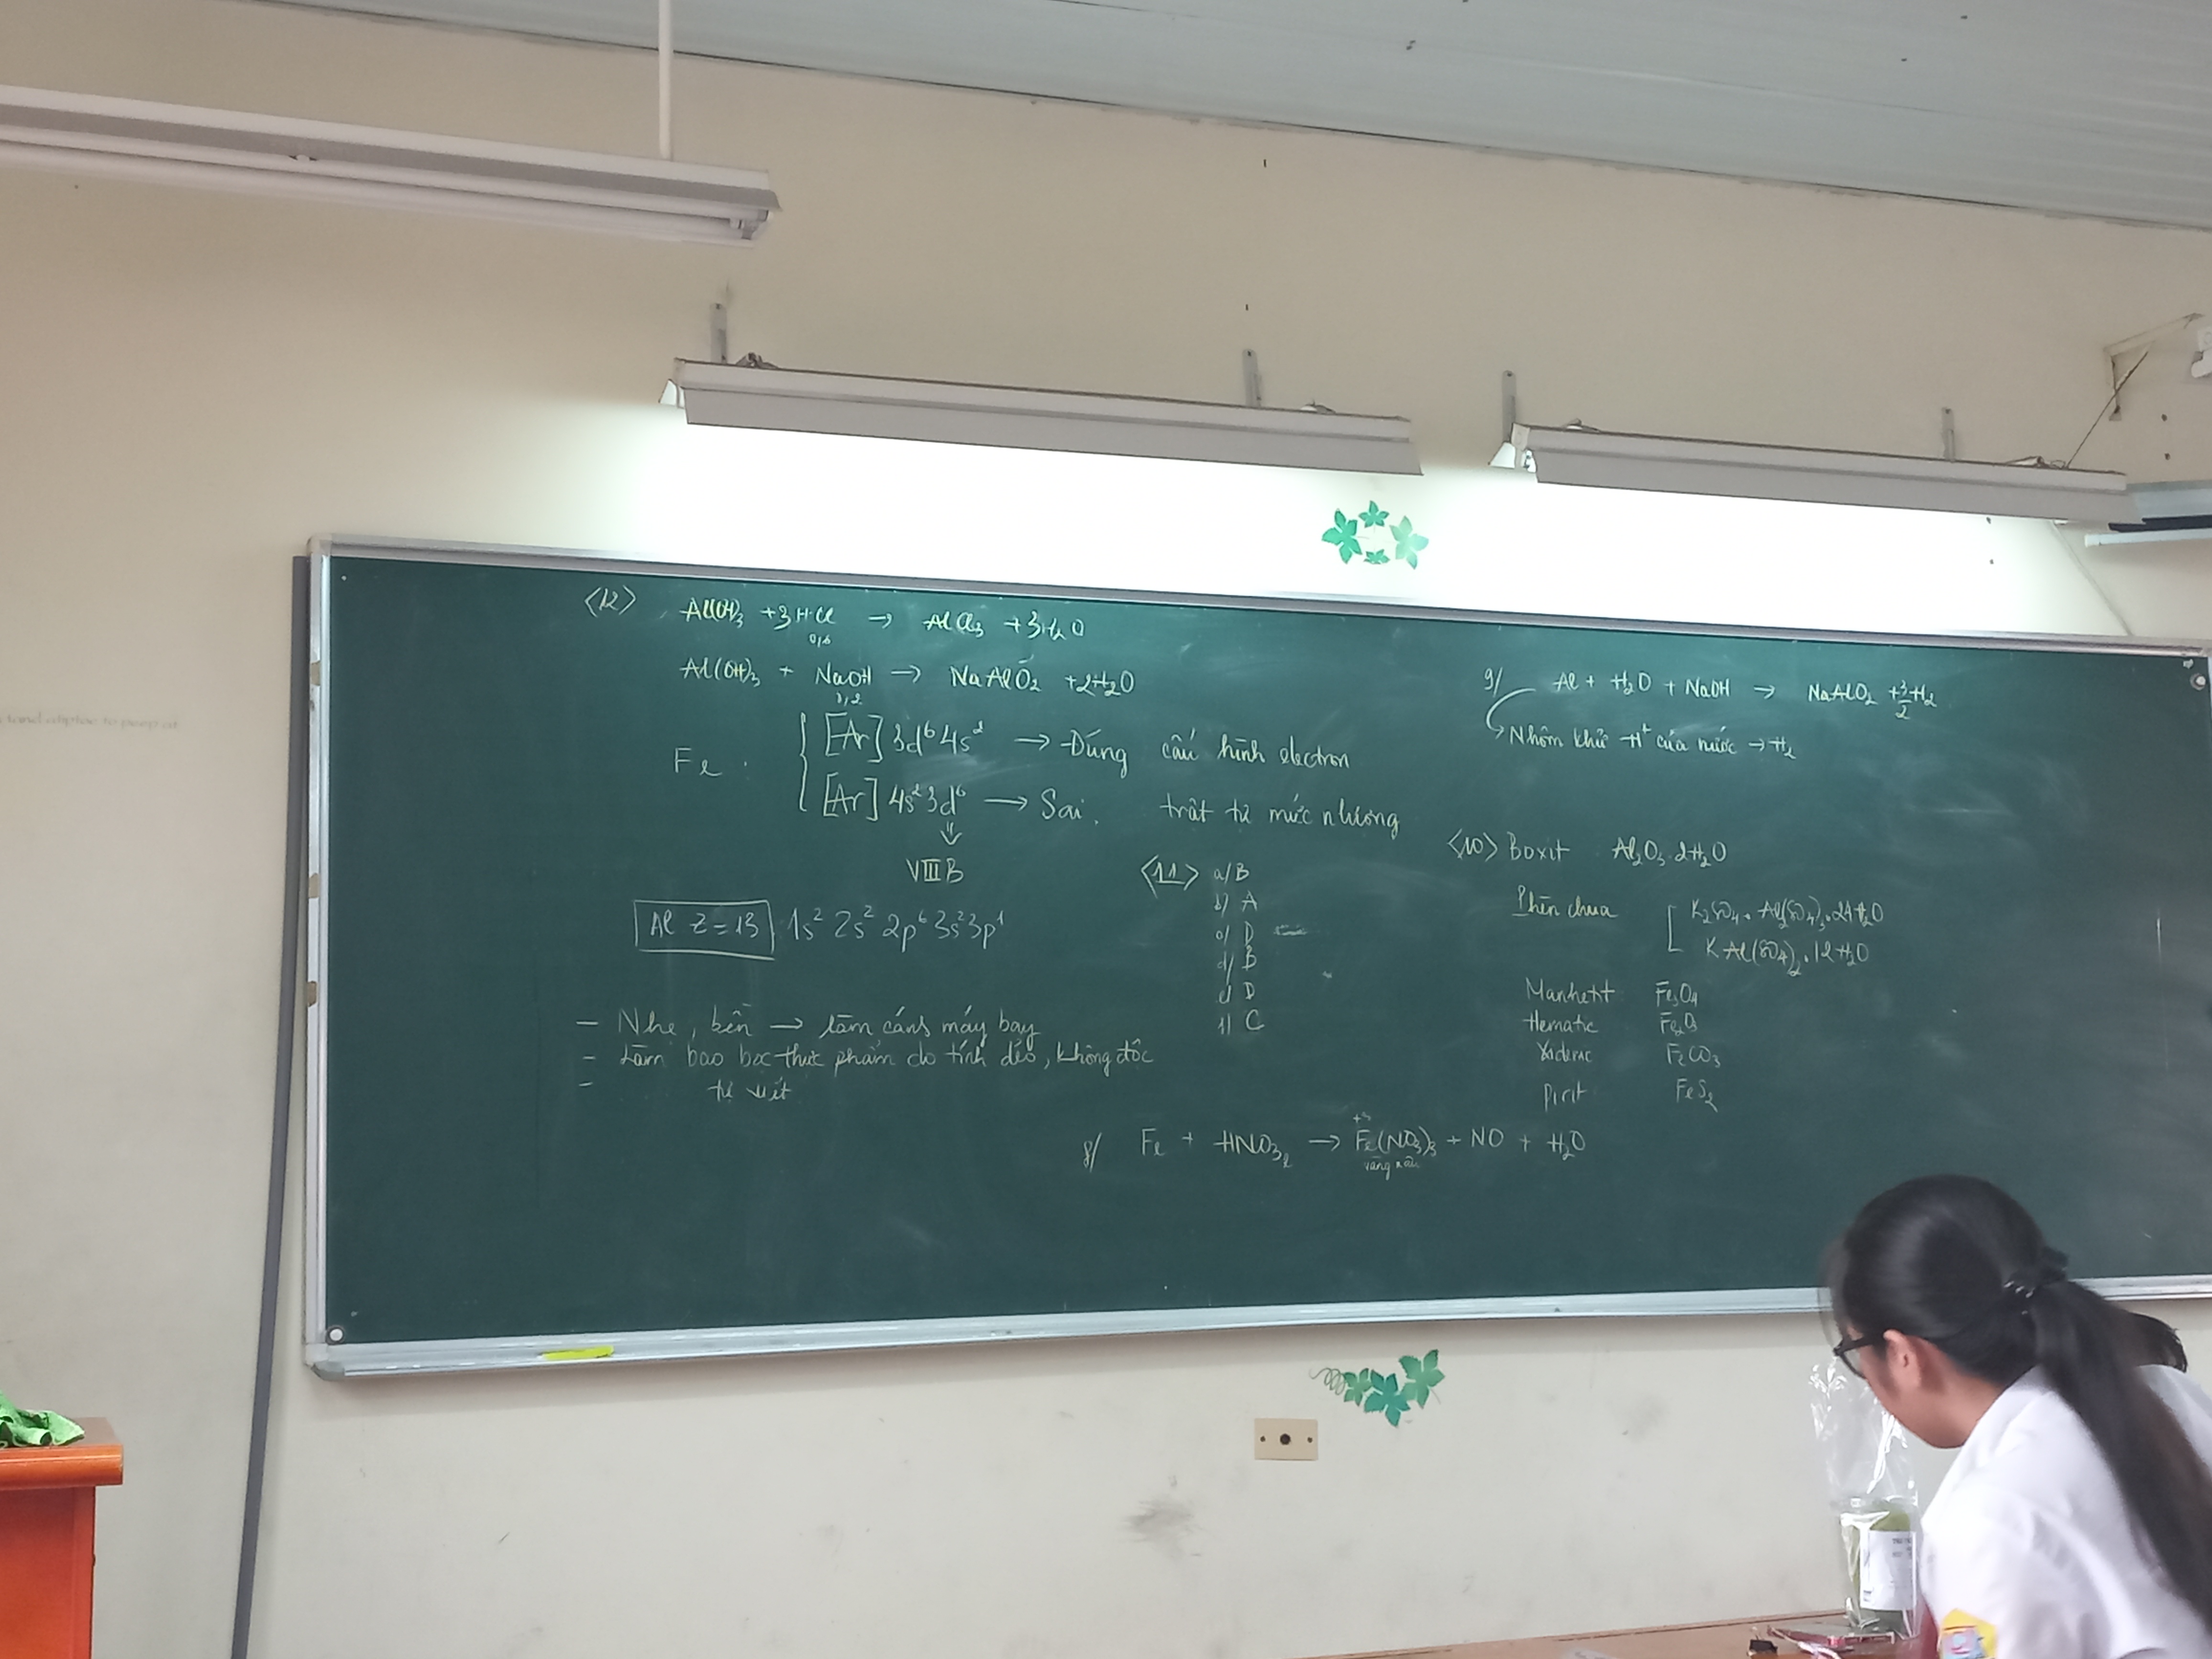 <12> Al(OH)3 + 3HCl → AlCl3 + 3H2O
Al(OH)3 + NaOH → NaAlO2 + 2H2O
0,2
Fe : [Ar] 3d⁶4s² → Đúng cấu hình electron
[Ar] 4s²3d⁶ → Sai. trật tự mức nhương
⇓
VIIIB
Al Z = 13 1s² 2s² 2p⁶ 3s² 3p¹
- Nhẹ, bền → làm cánh máy bay
- Làm bao bọc thực phẩm do tính dẻo, không độc
- tự viết
<11> a/ B
b/ A
c/ D
d/ B
e/ D
f/ C
8/ Fe + HNO3 → Fe(NO3)3 + NO + H2O
+3
vàng nâu
9/ Al + H2O + NaOH → NaAlO2 + 3/2 H2
Nhôm khử H⁺ của nước → H2
<10> Boxit Al2O3.2H2O
Phèn chua K2SO4.Al2(SO4)3.24H2O
KAl(SO4)2.12H2O
Manhetit Fe3O4
Hematic Fe2O3
Xideric FeCO3
Pirit FeS2